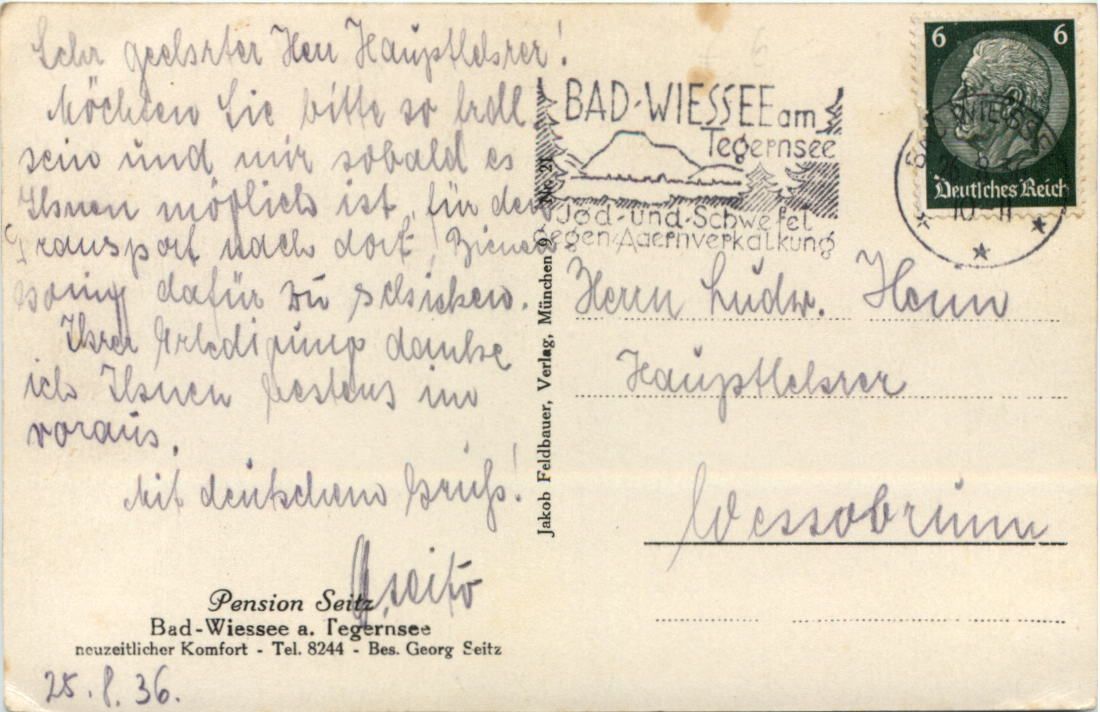 Sehr geehrter Herr Hauptlehrer!
Möchten Sie bitte so frdl.
sein und mir sobald es
Ihnen möglich ist, für den
Transport nach dort,
dafür zu schicken.
Ihrer Erledigung danke
ich Ihnen bestens im
voraus.
Mit deutschem Gruß!
G. Seitz
Pension Seitz
Bad-Wiessee a. Tegernsee
neuzeitlicher Komfort - Tel. 8244 - Bes. Georg Seitz
25. 8. 36.
Jakob Feldbauer, Verlag, München 9, Nr. 21
BAD-WIESSEE am
Tegernsee
Jod-und-Schwefel
gegen Adernverkalkung
6 6
Deutsches Reich
BAD WIESSEE
Herrn Ludw. Henn
Hauptlehrer
Wessobrunn